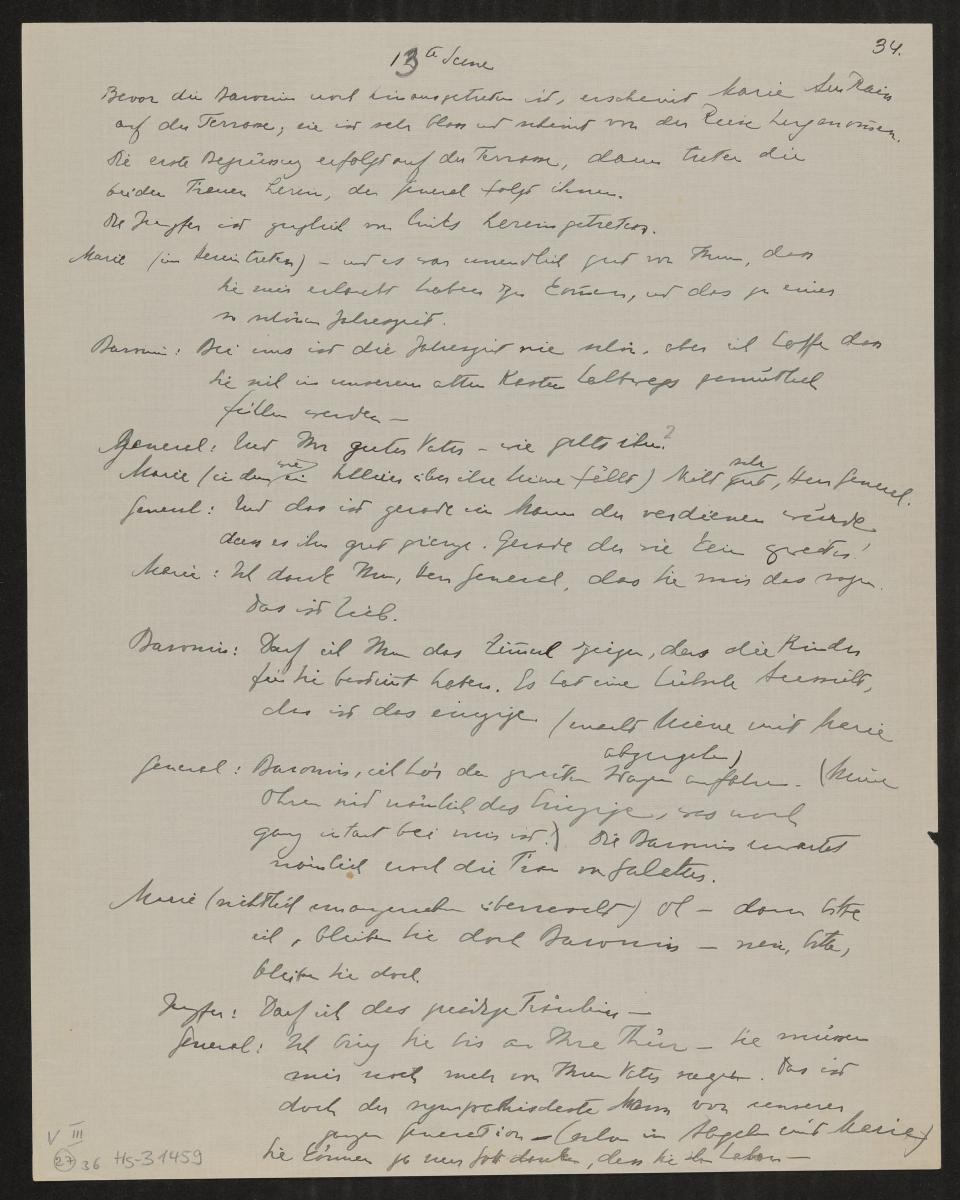 34.
13te Scene
Bevor die Baronin noch hinausgetreten ist, erscheint Marie Am Rain
auf der Terrasse; sie ist sehr blass und scheint von der Reise hergenommen.
Die erste Begrüssung erfolgt auf der Terrasse, dann treten die
beiden Frauen herein, der General folgt ihnen.
Die Jungfer ist zugleich von links hereingetreten.
Marie (im Hereintreten) – und es war unendlich gut von Ihnen, dass
Sie mir erlaubt haben zu kommen, und das zu einer
so schönen Jahreszeit.
Baronin: Bei uns ist die Jahreszeit nie schön. aber ich hoffe dass
Sie sich in unserem alten Kasten halbwegs gemüthlich
fühlen werden –
General: Und Ihr guter Vater – wie gehts ihm?
Marie (indem wie ein Schleier über ihre Miene fällt) Nicht sehr gut, Herr General.
General: Und das ist gerade ein Mann der verdienen würde
dass es ihm gut gienge. Gerade der wie kein zweiter!
Marie: Ich danke Ihnen, Herr General, dass Sie mir das sagen.
Das ist lieb.
Baronin: Darf ich Ihnen das Zimmerl zeigen, das die Kinder
für Sie bestimmt haben. Es hat eine hübsche Aussicht,
das ist das einzige. (macht Miene mit Marie
abzugehen)
General: Baronin, ich hör den zweiten Wagen anfahren. (Meine
Ohren sind nämlich das Einzige, was noch
ganz intact bei mir ist!) Die Baronin erwartet
nämlich noch die Frau von Galattis.
Marie (sichtlich unangenehm überrascht) Oh – dann bitte
ich, bleiben Sie doch Baronin – nein, bitte,
bleiben Sie doch.
Jungfer: Darf ich das gnädige Fräulein –
General: Ich bring Sie bis an Ihre Thür – Sie müssen
mir noch mehr von Ihrem Vater sagen. Das ist
doch der sympathischeste Mann von unserer
ganzen Generation – (schon im Abgehen mit Marie)
Sie können ja nur Gott danken, dass Sie ihn haben –
V III
27 36 HS-31459